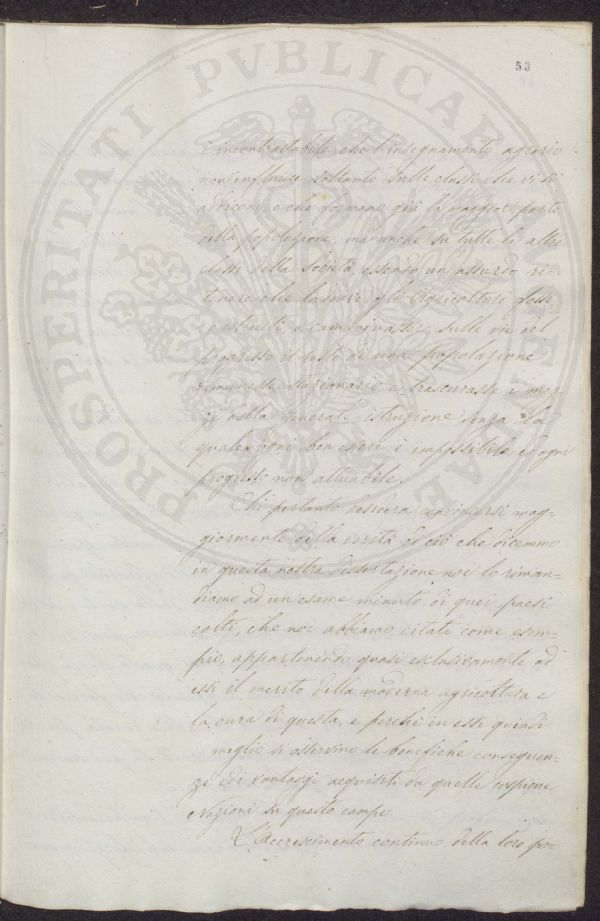 53
PROSPERITATI PVBLICAE AVGENDAE
È incontrastabile che l'insegnamento agrario
non influisce soltanto sulle classi che vi si
dedicano e che formano già la maggior parte
della popolazione, ma anche su tutte le altre
classi della Società, essendo un assurdo ri=
tenere che laddove gli Agricoltori fosse=
ro istruiti e camminassero sulle vie del
progresso il resto di una popolazione
rimanesse stazionario e trascurasse i mez=
zi della generale istruzione senza la
quale ogni ben essere è impossibile ed ogni
progresso non attuabile.
Chi pertanto desidera convincersi mag=
giormente della verità di ciò che dicemmo
in questa nostra dissertazione noi lo riman=
diamo ad un esame minuto di quei paesi
colti, che noi abbiamo citati come esem=
pio, appartenendo quasi esclusivamente ad
essi il merito della moderna agricoltura e
la cura di questa, e perché in essi quindi
meglio si osservino le benefiche conseguen=
ze ed i vantaggi acquisiti da quelle cospicue
Nazioni su questo campo.
L'Accrescimento continuo della loro po=